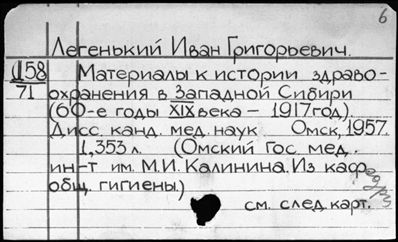 6
Легенький Иван Григорьевич.
158 Материалы к истории здраво-
71 охранения в Западной Сибири
(60-е годы XIX века - 1917 год).
Дисс. канд. мед. наук Омск, 1957.
1,353 л. (Омский Гос. мед.
ин-т им. М.И. Калинина. Из каф.
общ. гигиены.)
см. след. карт.